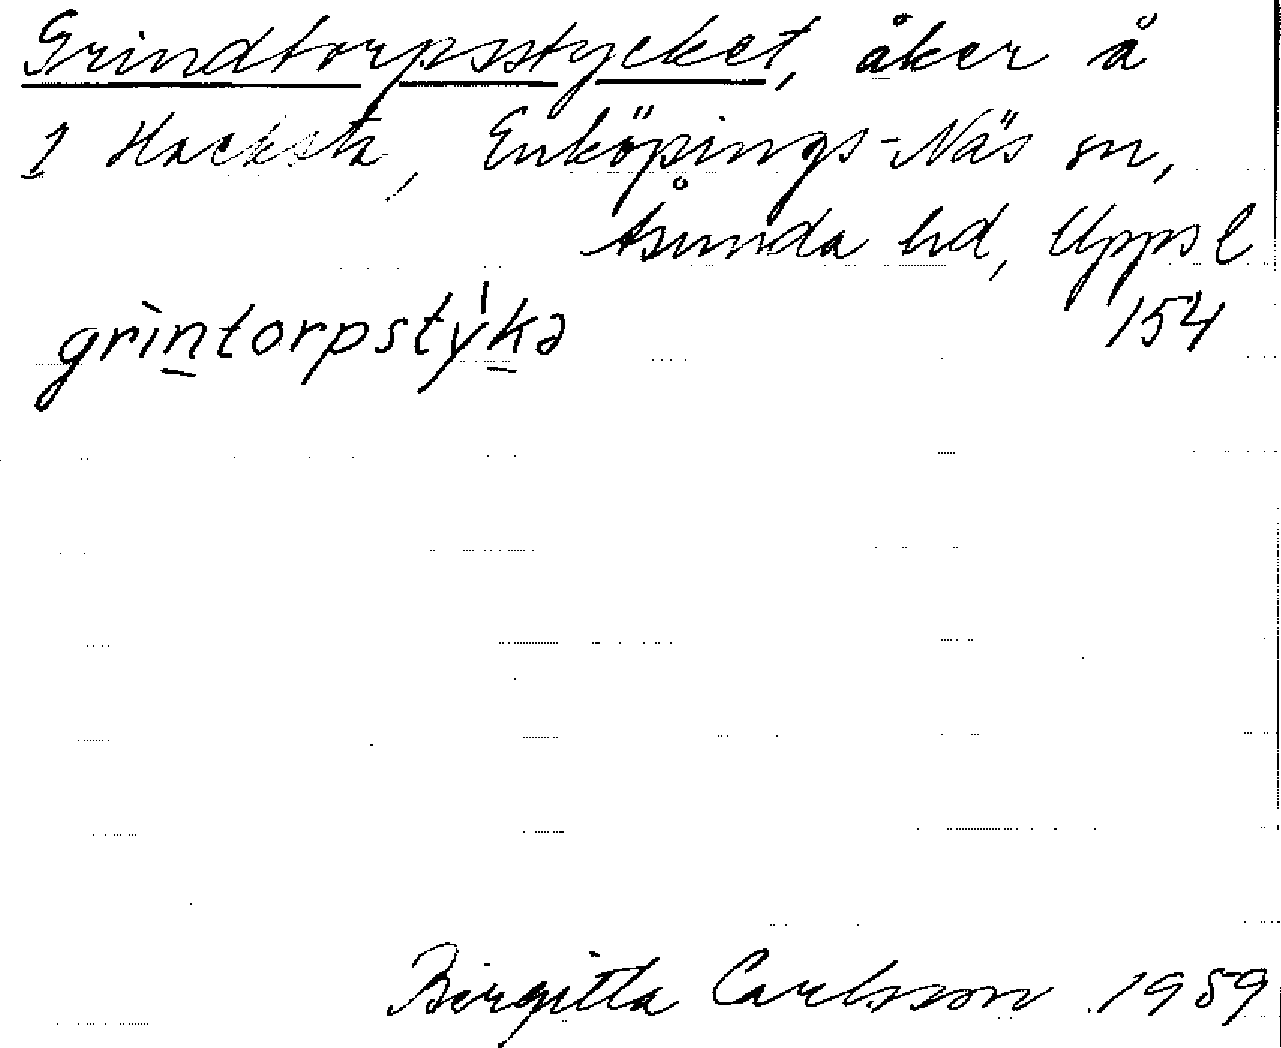 Grindtorpsstycket, åker å
1 Hacksta, Enköpings-Näs sn,
Åsunda hd, Uppsl
grìn̲torpstý'k̲ə 154
Birgitta Carlsson 1959